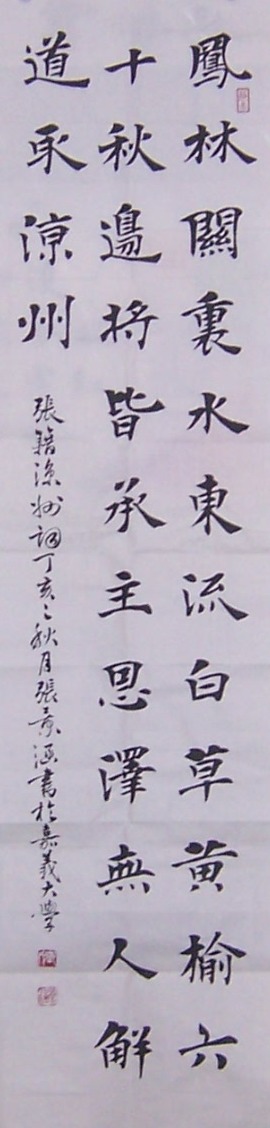 鳳林關裏水東流白草黃榆六
十秋邊將皆承主恩澤無人解
道取涼州
張籍涼州詞丁亥之秋月張景涵書於嘉義大學